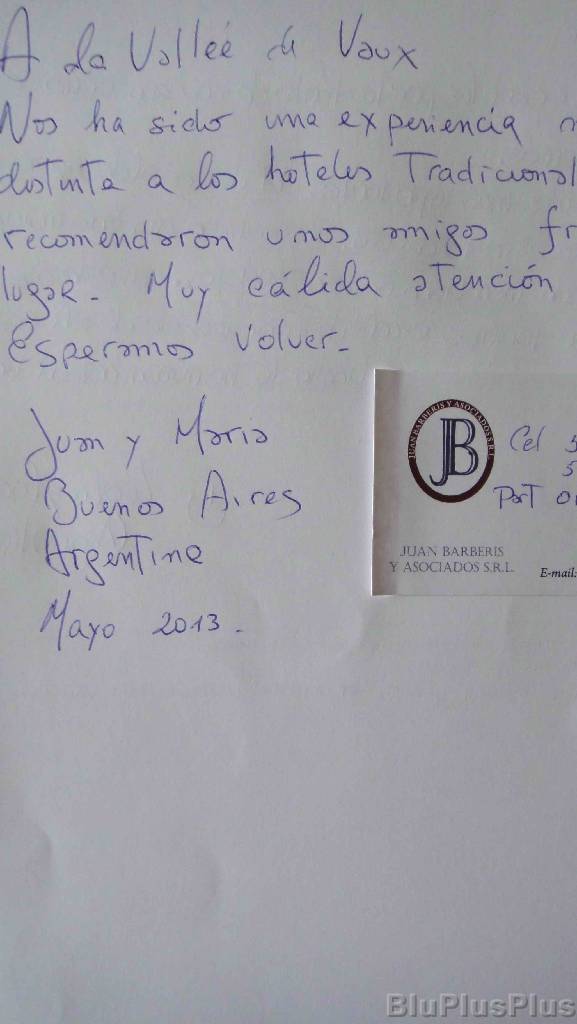 A la Valleé de Vaux
Nos ha sido una experiencia
distinta a los hoteles Tradicional
recomendaron unos amigos fr
lugar. Muy cálida atención
Esperamos volver.
Juan y Maria
Buenos Aires
Argentina
Mayo 2013.
JUAN BARBERIS Y ASOCIADOS S.R.L.
JB
Cel 5
5
Part
JUAN BARBERIS
Y ASOCIADOS S.R.L.
E-mail:
BluPlusPlus